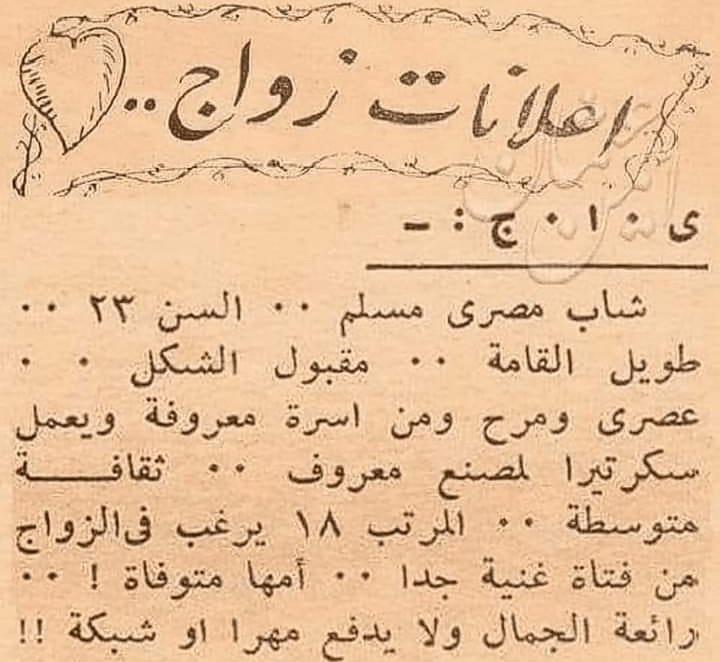 اعلانات زواج..
ى ٠ ا ٠ ج : -
شاب مصرى مسلم ٠٠ السن ٢٣ ٠٠
طويل القامة ٠٠ مقبول الشكل ٠ ٠
عصرى ومرح ومن اسرة معروفة ويعمل
سكرتيرا لمصنع معروف ٠٠ ثقافة
متوسطة ٠٠ المرتب ١٨ يرغب فى الزواج
من فتاة غنية جدا ٠٠ أمها متوفاة ! ٠٠
رائعة الجمال ولا يدفع مهرا او شبكة !!